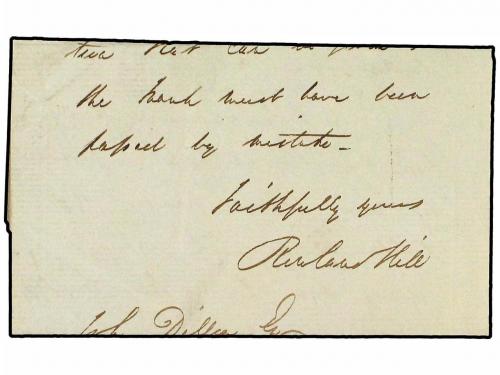 that can be
the Frank must have been
passed by mistake —
Faithfully yours
Rowland Hill
Dillon Esq